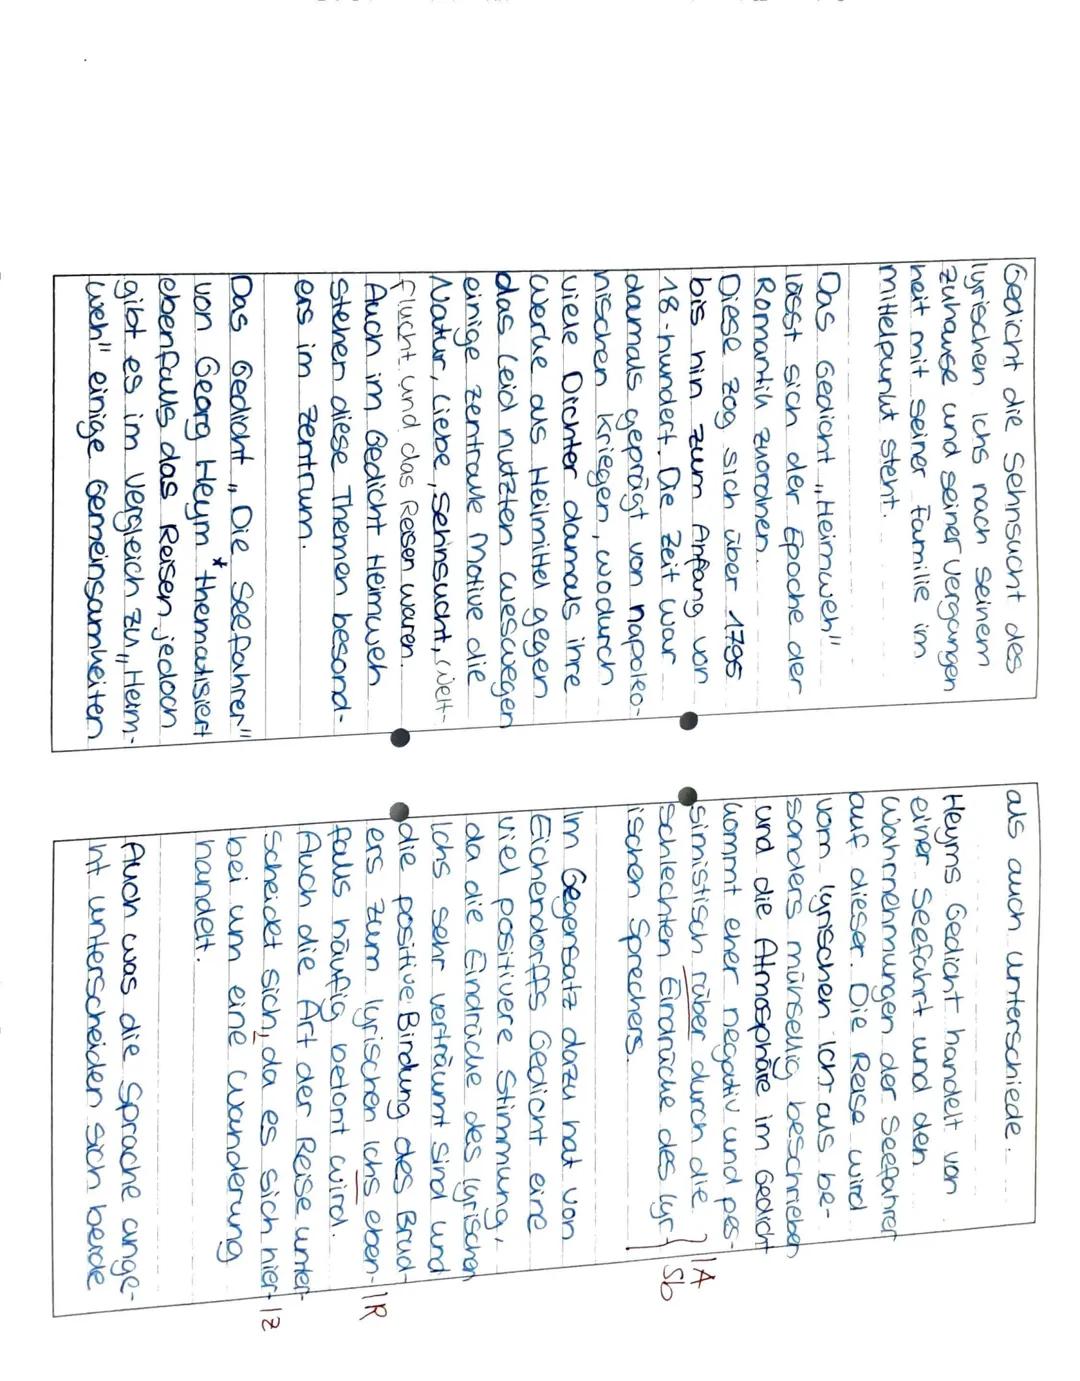 Gedicht die Sehnsucht des
lyrischen Ichs nach seinem
zuhause und seiner vergangen
heit mit seiner Familie im
mittelpunkt steht.
Das Gedicht „Heimweh"
lässt sich der Epoche der
Romantik zuordnen.
Diese zog sich über 1795
bis hin zum Anfang von
18-hundert. Die Zeit war
damals geprägt von napoleo-
nischen Kriegen, wodurch
viele Dichter damals ihre
Werke als Heilmittel gegen
das Leid nutzten weswegen
einige zentrale Motive die
Natur, Liebe, Sehnsucht, (Welt-
flucht und das Reisen waren.
Auch im Gedicht Heimweh
stehen diese Themen besond-
ers im Zentrum.
Das Gedicht „Die Seefahrer"
von Georg Heym * thematisiert
ebenfalls das Reisen, jedoch
gibt es im Vergleich zu „Heim-
weh" einige Gemeinsamkeiten
als auch unterschiede.
Heyms Gedicht handelt von
einer Seefahrt und den
Wahrnehmungen der Seefahrer
auf dieser. Die Reise wird
vom lyrischen Ich als be-
sonders münsellig beschrieben
und die Atmosphäre im Gedicht
kommt eher negativ und pes-
simistisch rüber durch die IA
schlechten Eindrücke des lyr- Sb
ischen Sprechers.
Im Gegensatz dazu hat von
Eichendorffs Gedicht eine
viel positivere Stimmung,
da die Eindrücke des lyrischen
Ichs sehr verträumt sind und
die positive Bindung des Brud-
ers zum lyrischen Ichs eben- IR
falls häufig betont wird.
Auch die Art der Reise unter-
scheidet sich, da es sich hier- IZ
bei um eine Wanderung
handelt.
Auch was die Sprache ange-
ht unterscheiden sich beide